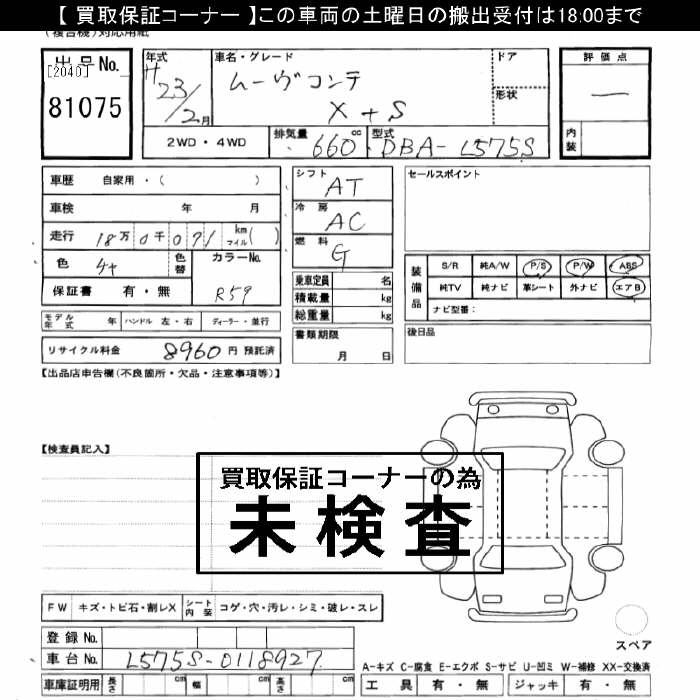 【 買取保証コーナー 】この車両の土曜日の搬出受付は18:00まで
(複合機)対応用紙
出品No.
[2040]
81075
年式
H 23/2月
車名・グレード
ムーヴコンテ
X+S
ドア
形状
評価点
—
内装
2WD・4WD
排気量
660 cc
型式
DBA-L575S
車歴 自家用・( )
車検 年 月
走行 18万0千071 km マイル( )
色
色替
カラーNo.
R59
保証書 有・無
シフト
AT
冷房
AC
燃料
G
乗車定員 名
積載量 kg
総重量 kg
書類期限
月 日
セールスポイント
装備品
S/R 純A/W P/S P/W ABS
純TV 純ナビ 革シート 外ナビ エアB
ナビ型番:
後日品
モデル年式 年 ハンドル 左・右 ディーラー・並行
リサイクル料金 8960 円 預託済
【出品店申告欄(不良箇所・欠品・注意事項等)】
【検査員記入】
買取保証コーナーの為
未検査
FW キズ・トビ石・割レX シート内装 コゲ・穴・汚レ・シミ・破レ・スレ
登録No.
車台No. L575S-0118927
車庫証明用 長さ cm 幅 cm 高さ cm
スペア
A-キズ C-腐食 E-エクボ S-サビ U-凹ミ W-補修 XX-交換済
工具 有・無 ジャッキ 有・無